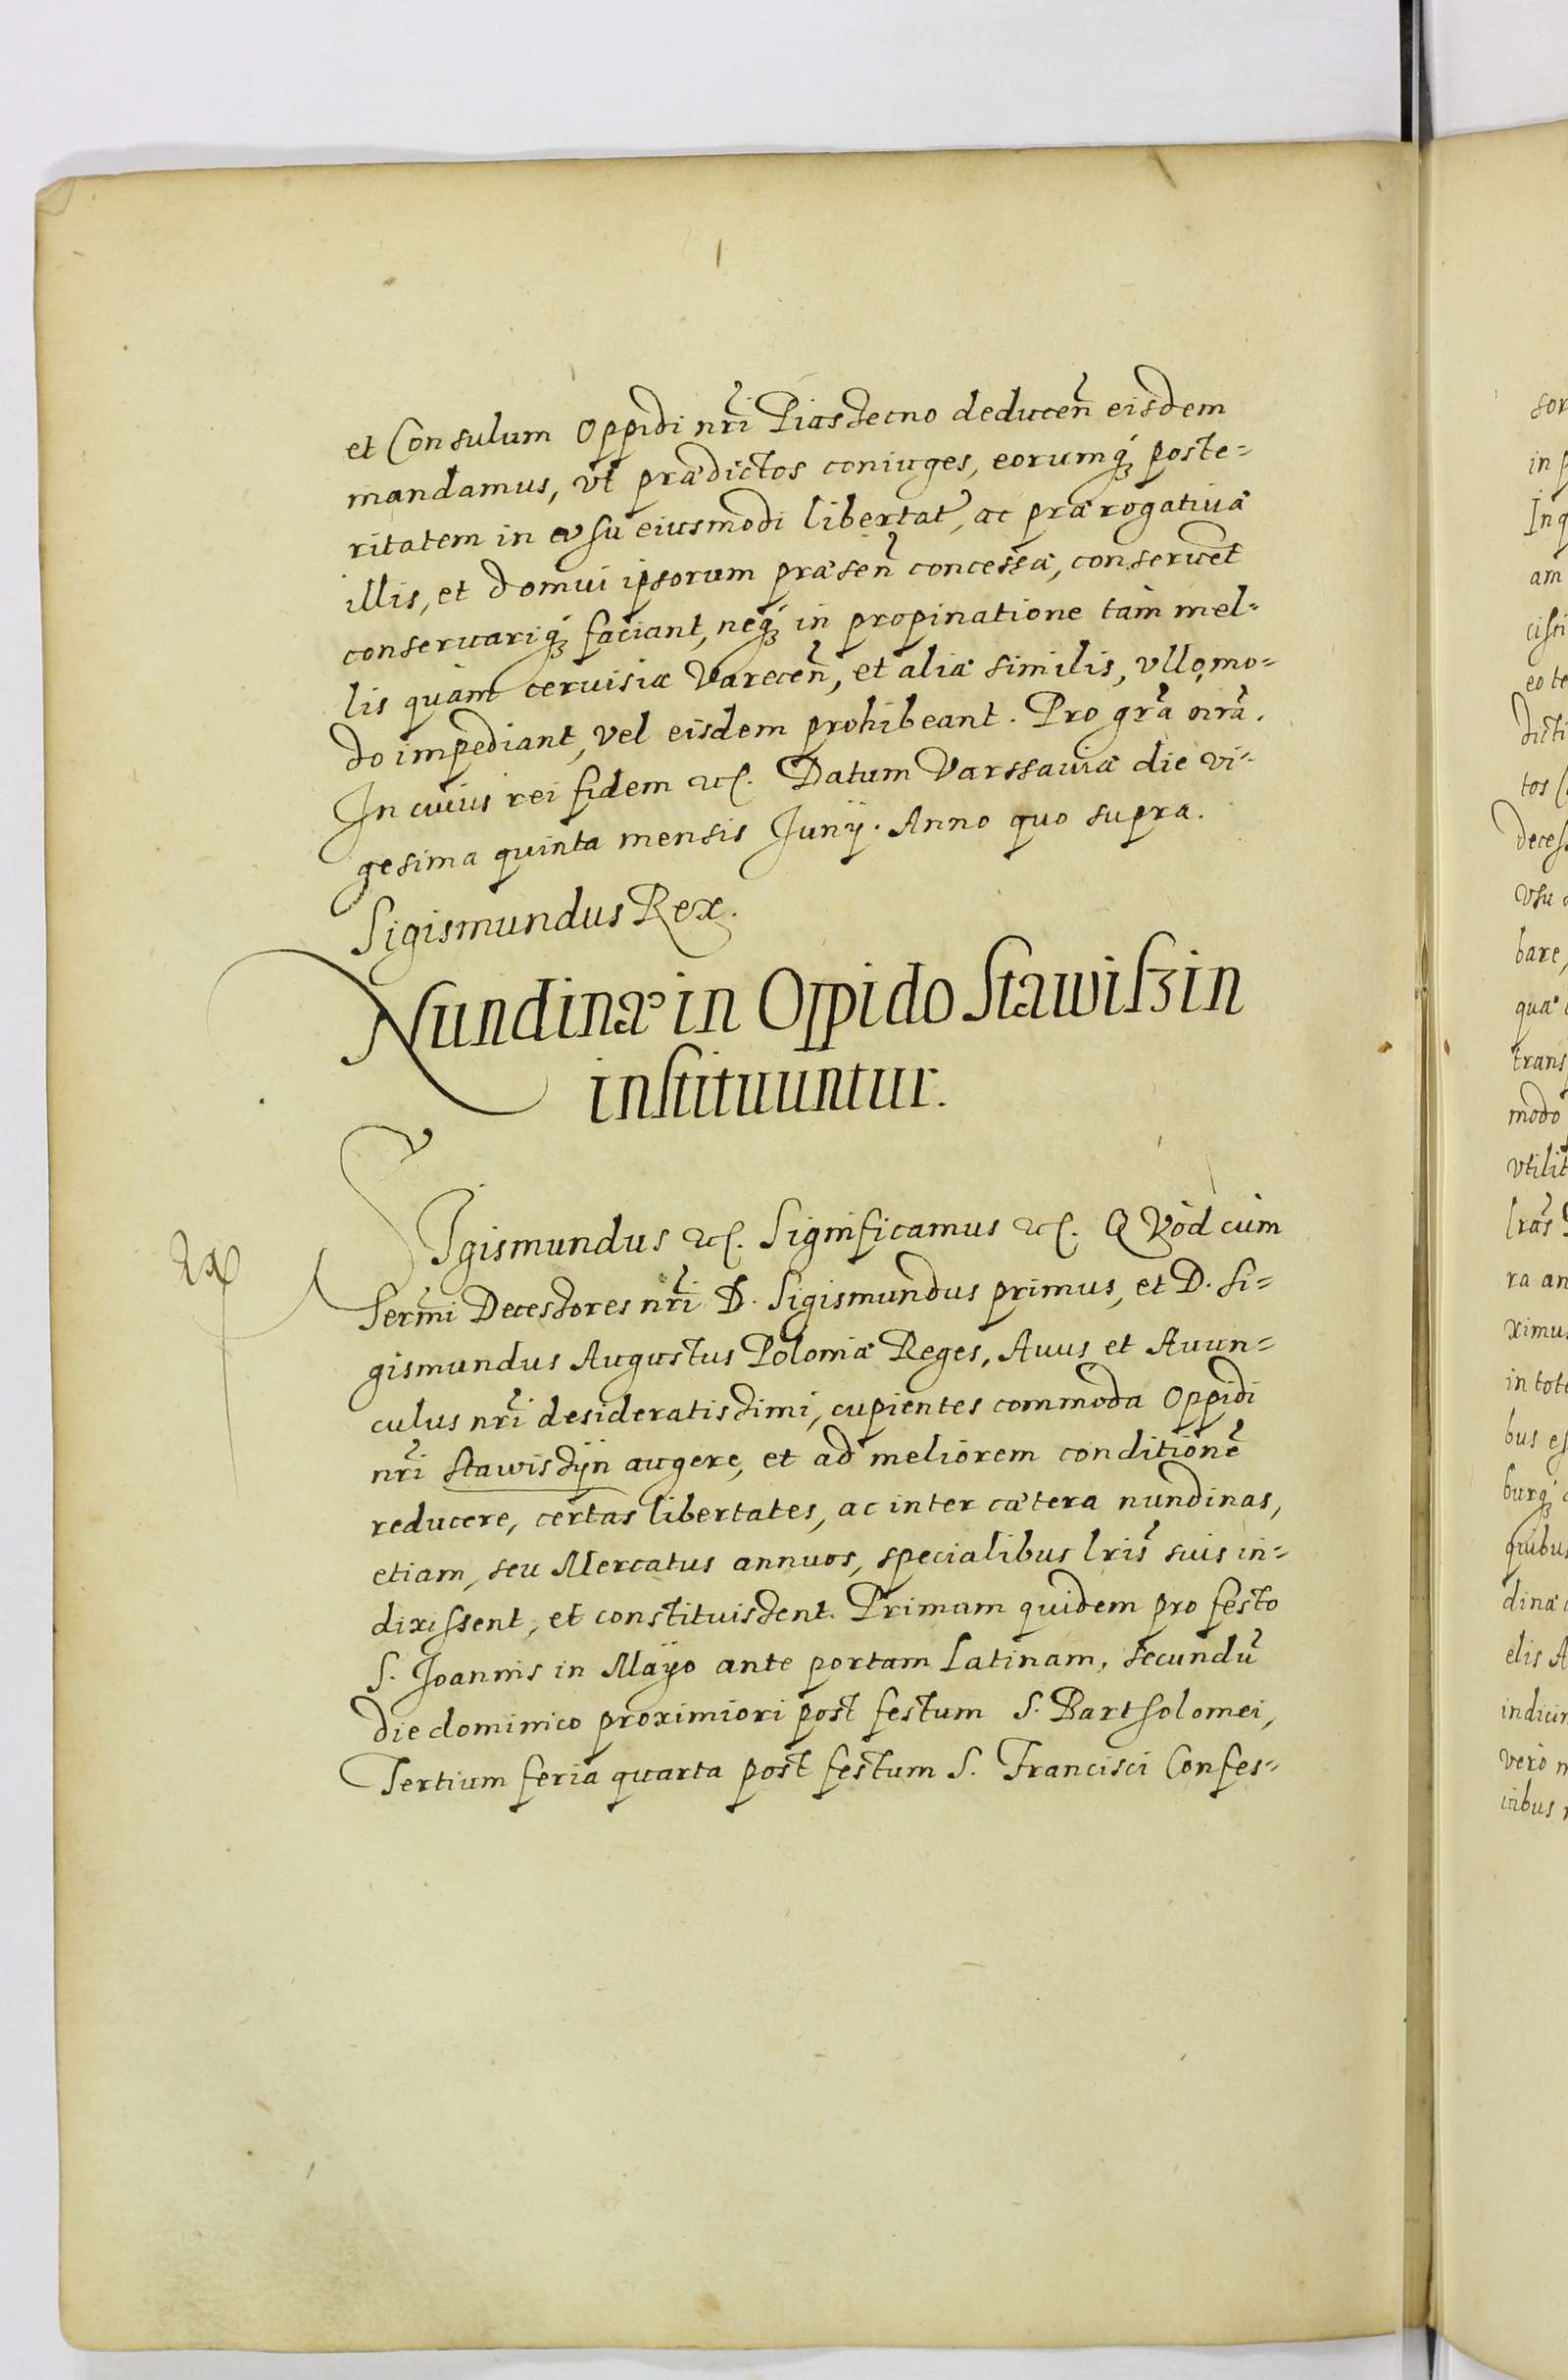 et Consulum Oppidi nr̃i Piasecno deduceñ eisdem
mandamus, vt prædictos coniuges, eorumq́ꝫ poste=
ritatem in vsu eiusmodi libertat, ac prærogatiuæ
illis, et domui ipsorum præseñ concessæ, conseruẽt
conseruariq́ꝫ faciant, neq́ꝫ in propinatione tàm mel=
lis quàm ceruisiæ Vareceñ, et aliæ similis, vllo mo=
do impediant, vel eisdem prohibeant. Pro gr̃a nr̃a.
In cuius rei fidem etc. Datum Varssauiæ die vi=
gesima quinta mensis Junÿ. Anno quo supra.
Sigismundus Rex.
Nundinæ in Oppido Stawiſʒin
inſtituuntur.
SIgismundus etc. Significamus etc. QVòd cùm
Serm̃i Decessores nr̃i D. Sigismundus primus, et D. Si=
gismundus Augustus Poloniæ Reges, Auus et Auun=
culus nr̃i desideratissimi, cupientes commoda Oppidi
nr̃i Stawissÿn augere, et ad meliorem conditionẽ
reducere, certas libertates, ac inter cætera nundinas,
etiam, seu Mercatus annuos, specialibus lr̃is suis in=
dixissent, et constituissent. Primam quidem pro festo
S. Joannis in Maÿo ante portam Latinam, secundũ
die dominico proximiori post festum S. Bartholomei,
Tertium feria quarta post festum S. Francisci Confes=